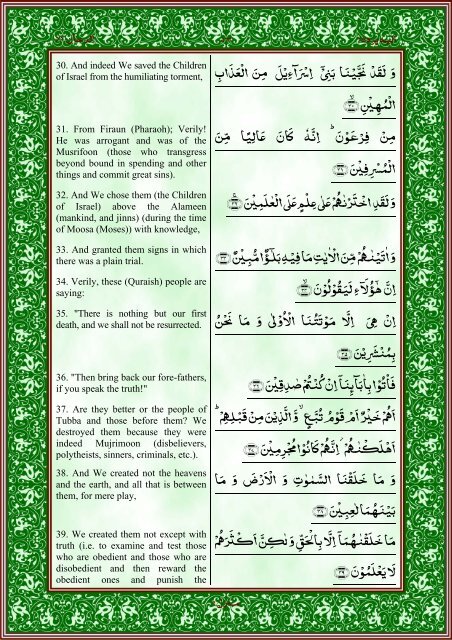 30. And indeed We saved the Children
of Israel from the humiliating torment,
وَ لَقَدْ نَجَّيْنَا بَنِيْٓ اِسْرَآءِيْلَ مِنَ الْعَذَابِ
الْمُهِيْنِ ۙ﴿۳۰﴾
31. From Firaun (Pharaoh); Verily!
He was arrogant and was of the
Musrifoon (those who transgress
beyond bound in spending and other
things and commit great sins).
مِنْ فِرْعَوْنَ ؕ اِنَّهٗ كَانَ عَالِيًا مِّنَ
الْمُسْرِفِيْنَ ﴿۳۱﴾
32. And We chose them (the Children
of Israel) above the Alameen
(mankind, and jinns) (during the time
of Moosa (Moses)) with knowledge,
وَلَقَدِ اخْتَرْنٰهُمْ عَلٰى عِلْمٍ عَلَى الْعٰلَمِيْنَ ﴿۳۲﴾
33. And granted them signs in which
there was a plain trial.
وَاٰتَيْنٰهُمْ مِّنَ الْاٰيٰتِ مَا فِيْهِ بَلٰٓؤٌا مُّبِيْنٌ ﴿۳۳﴾
34. Verily, these (Quraish) people are
saying:
اِنَّ هٰٓؤُلَآءِ لَيَقُوْلُوْنَ ﴿۳۴﴾
35. "There is nothing but our first
death, and we shall not be resurrected.
اِنْ هِيَ اِلَّا مَوْتَتُنَا الْاُوْلٰى وَ مَا نَحْنُ
بِمُنْشَرِيْنَ ﴿۳۵﴾
36. "Then bring back our fore-fathers,
if you speak the truth!"
فَاْتُوْا بِاٰبَآئِنَاۤ اِنْ كُنْتُمْ صٰدِقِيْنَ ﴿۳۶﴾
37. Are they better or the people of
Tubba and those before them? We
destroyed them because they were
indeed Mujrimoon (disbelievers,
polytheists, sinners, criminals, etc.).
اَهُمْ خَيْرٌ اَمْ قَوْمُ تُبَّعٍ ۙ وَّالَّذِيْنَ مِنْ قَبْلِهِمْ ؕ
اَهْلَكْنٰهُمْ ؗ اِنَّهُمْ كَانُوْا مُجْرِمِيْنَ ﴿۳۷﴾
38. And We created not the heavens
and the earth, and all that is between
them, for mere play,
وَ مَا خَلَقْنَا السَّمٰوٰتِ وَ الْاَرْضَ وَ مَا
بَيْنَهُمَا لٰعِبِيْنَ ﴿۳۸﴾
39. We created them not except with
truth (i.e. to examine and test those
who are obedient and those who are
disobedient and then reward the
obedient ones and punish the
مَا خَلَقْنٰهُمَاۤ اِلَّا بِالْحَقِّ وَلٰكِنَّ اَكْثَرَهُمْ
لَا يَعْلَمُوْنَ ﴿۳۹﴾